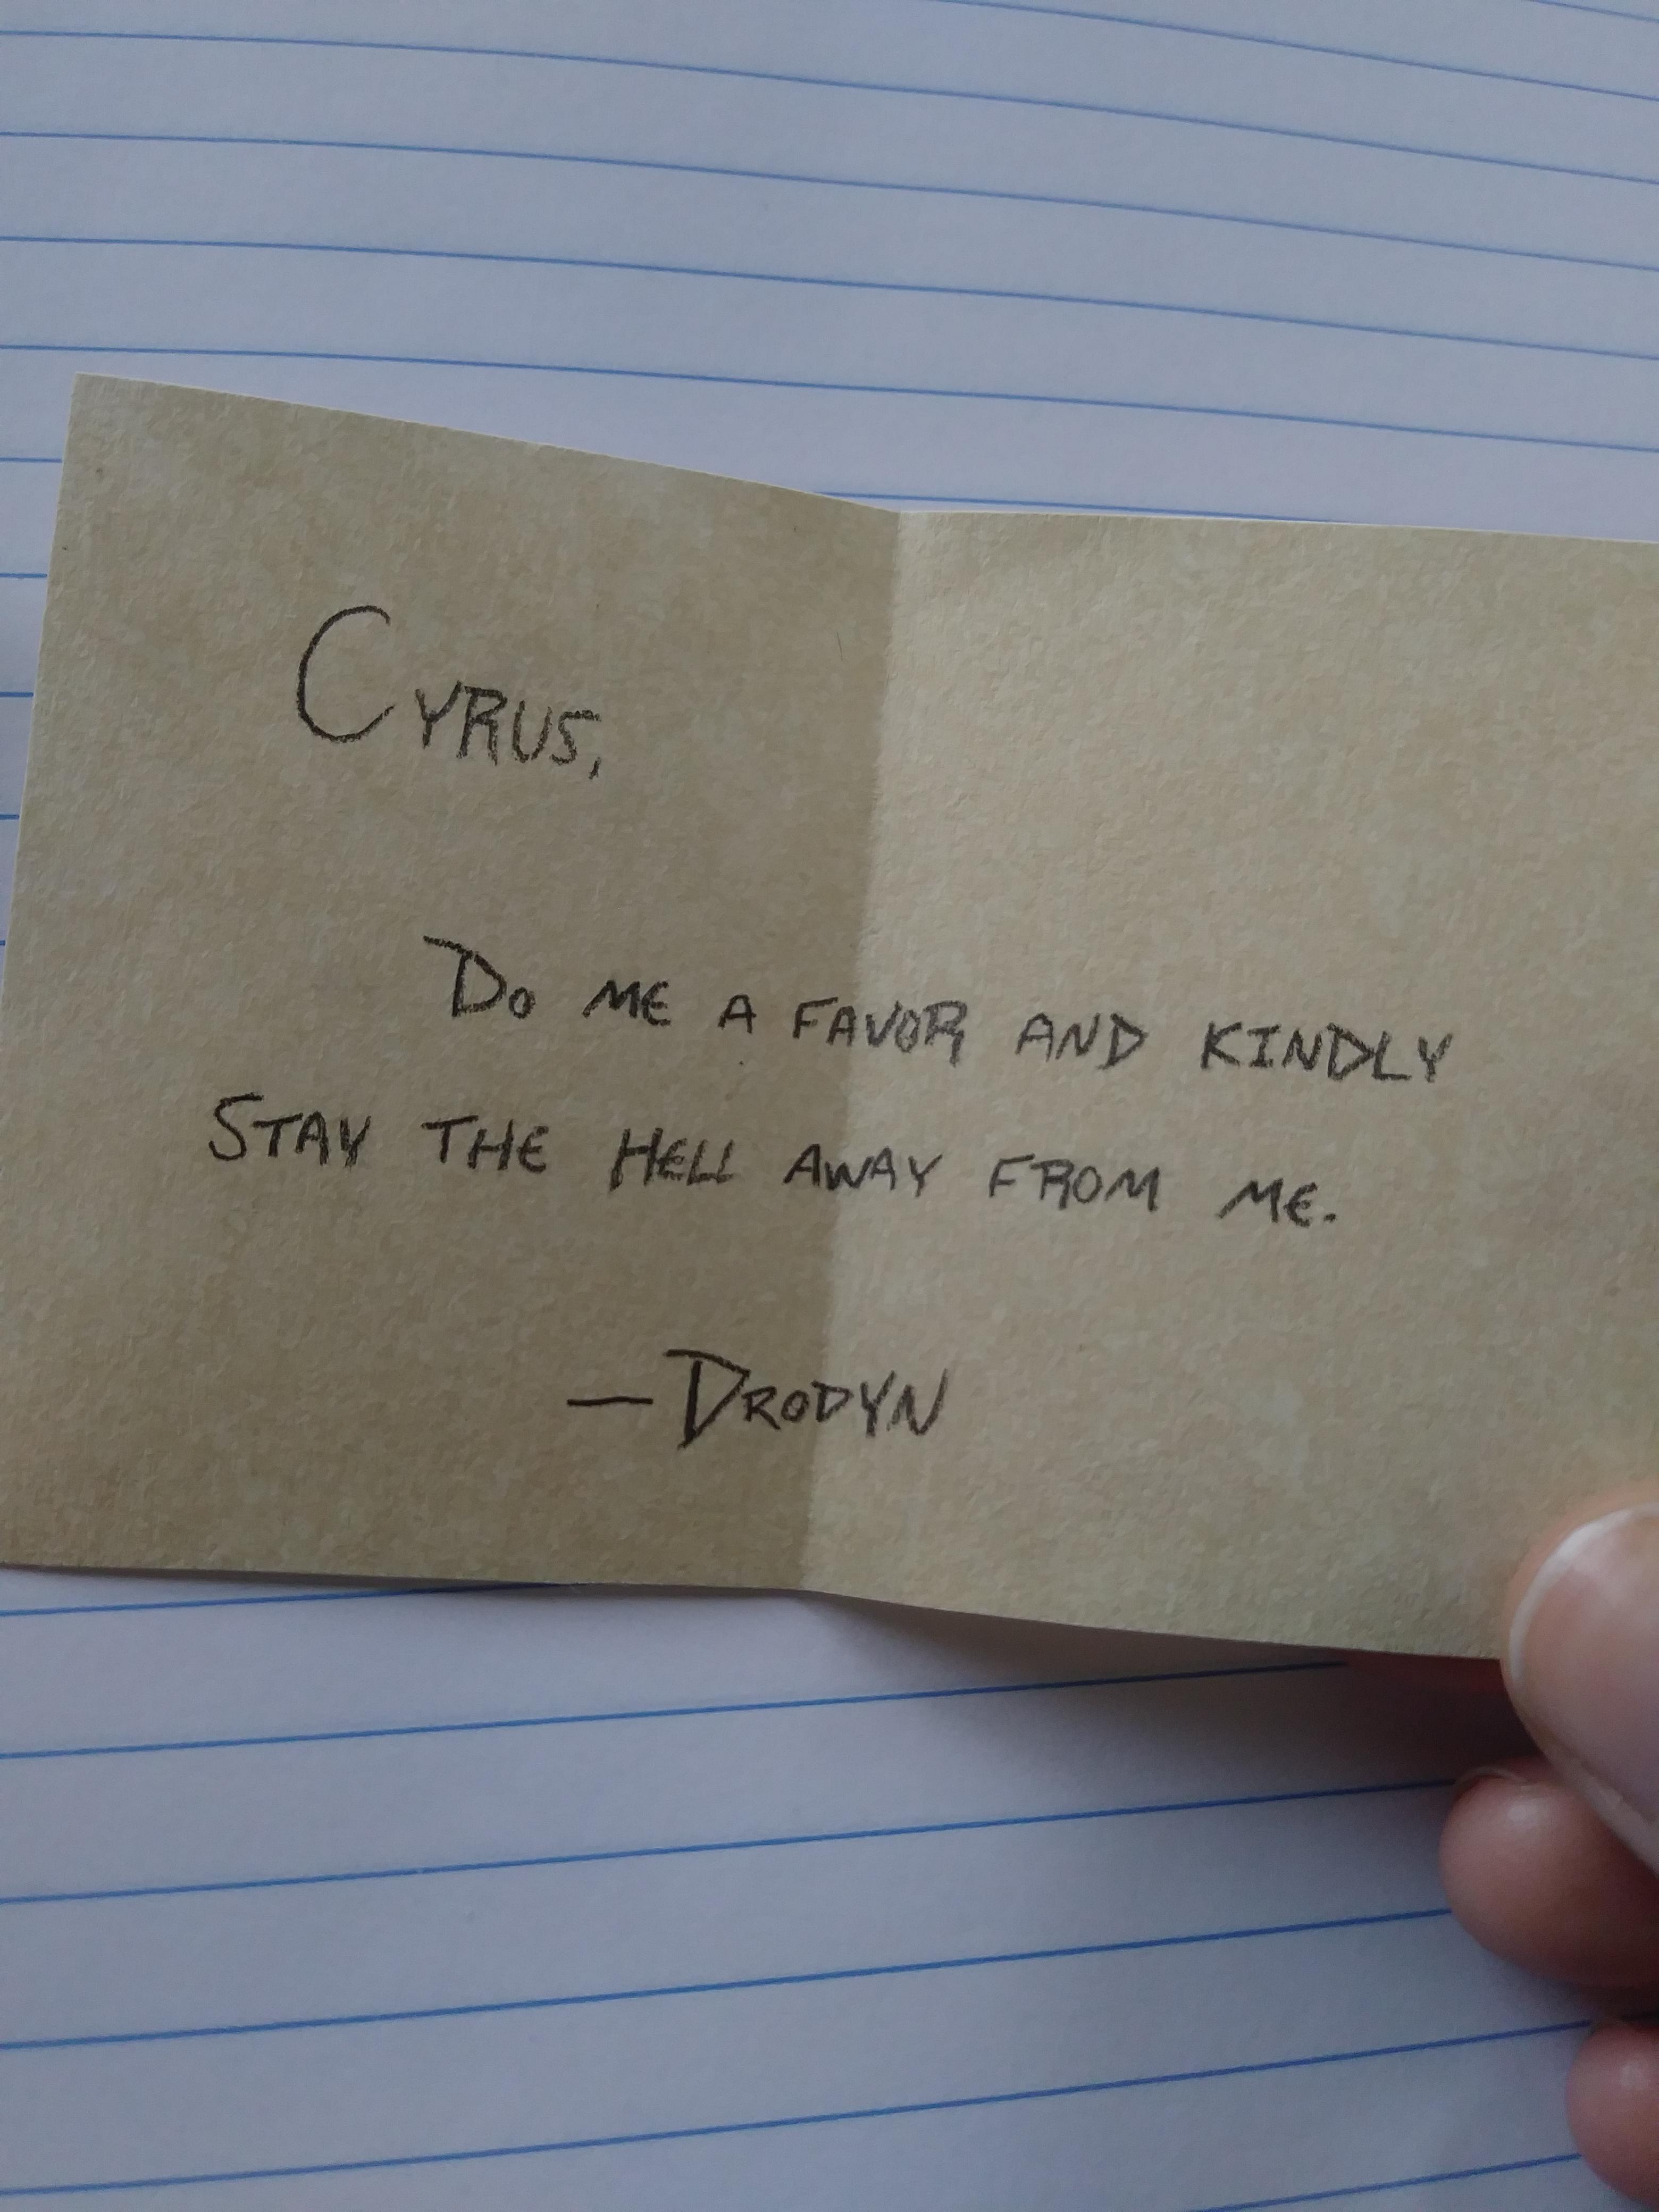 CYRUS,
DO ME A FAVOR AND KINDLY
STAY THE HELL AWAY FROM ME.
—DRODYN